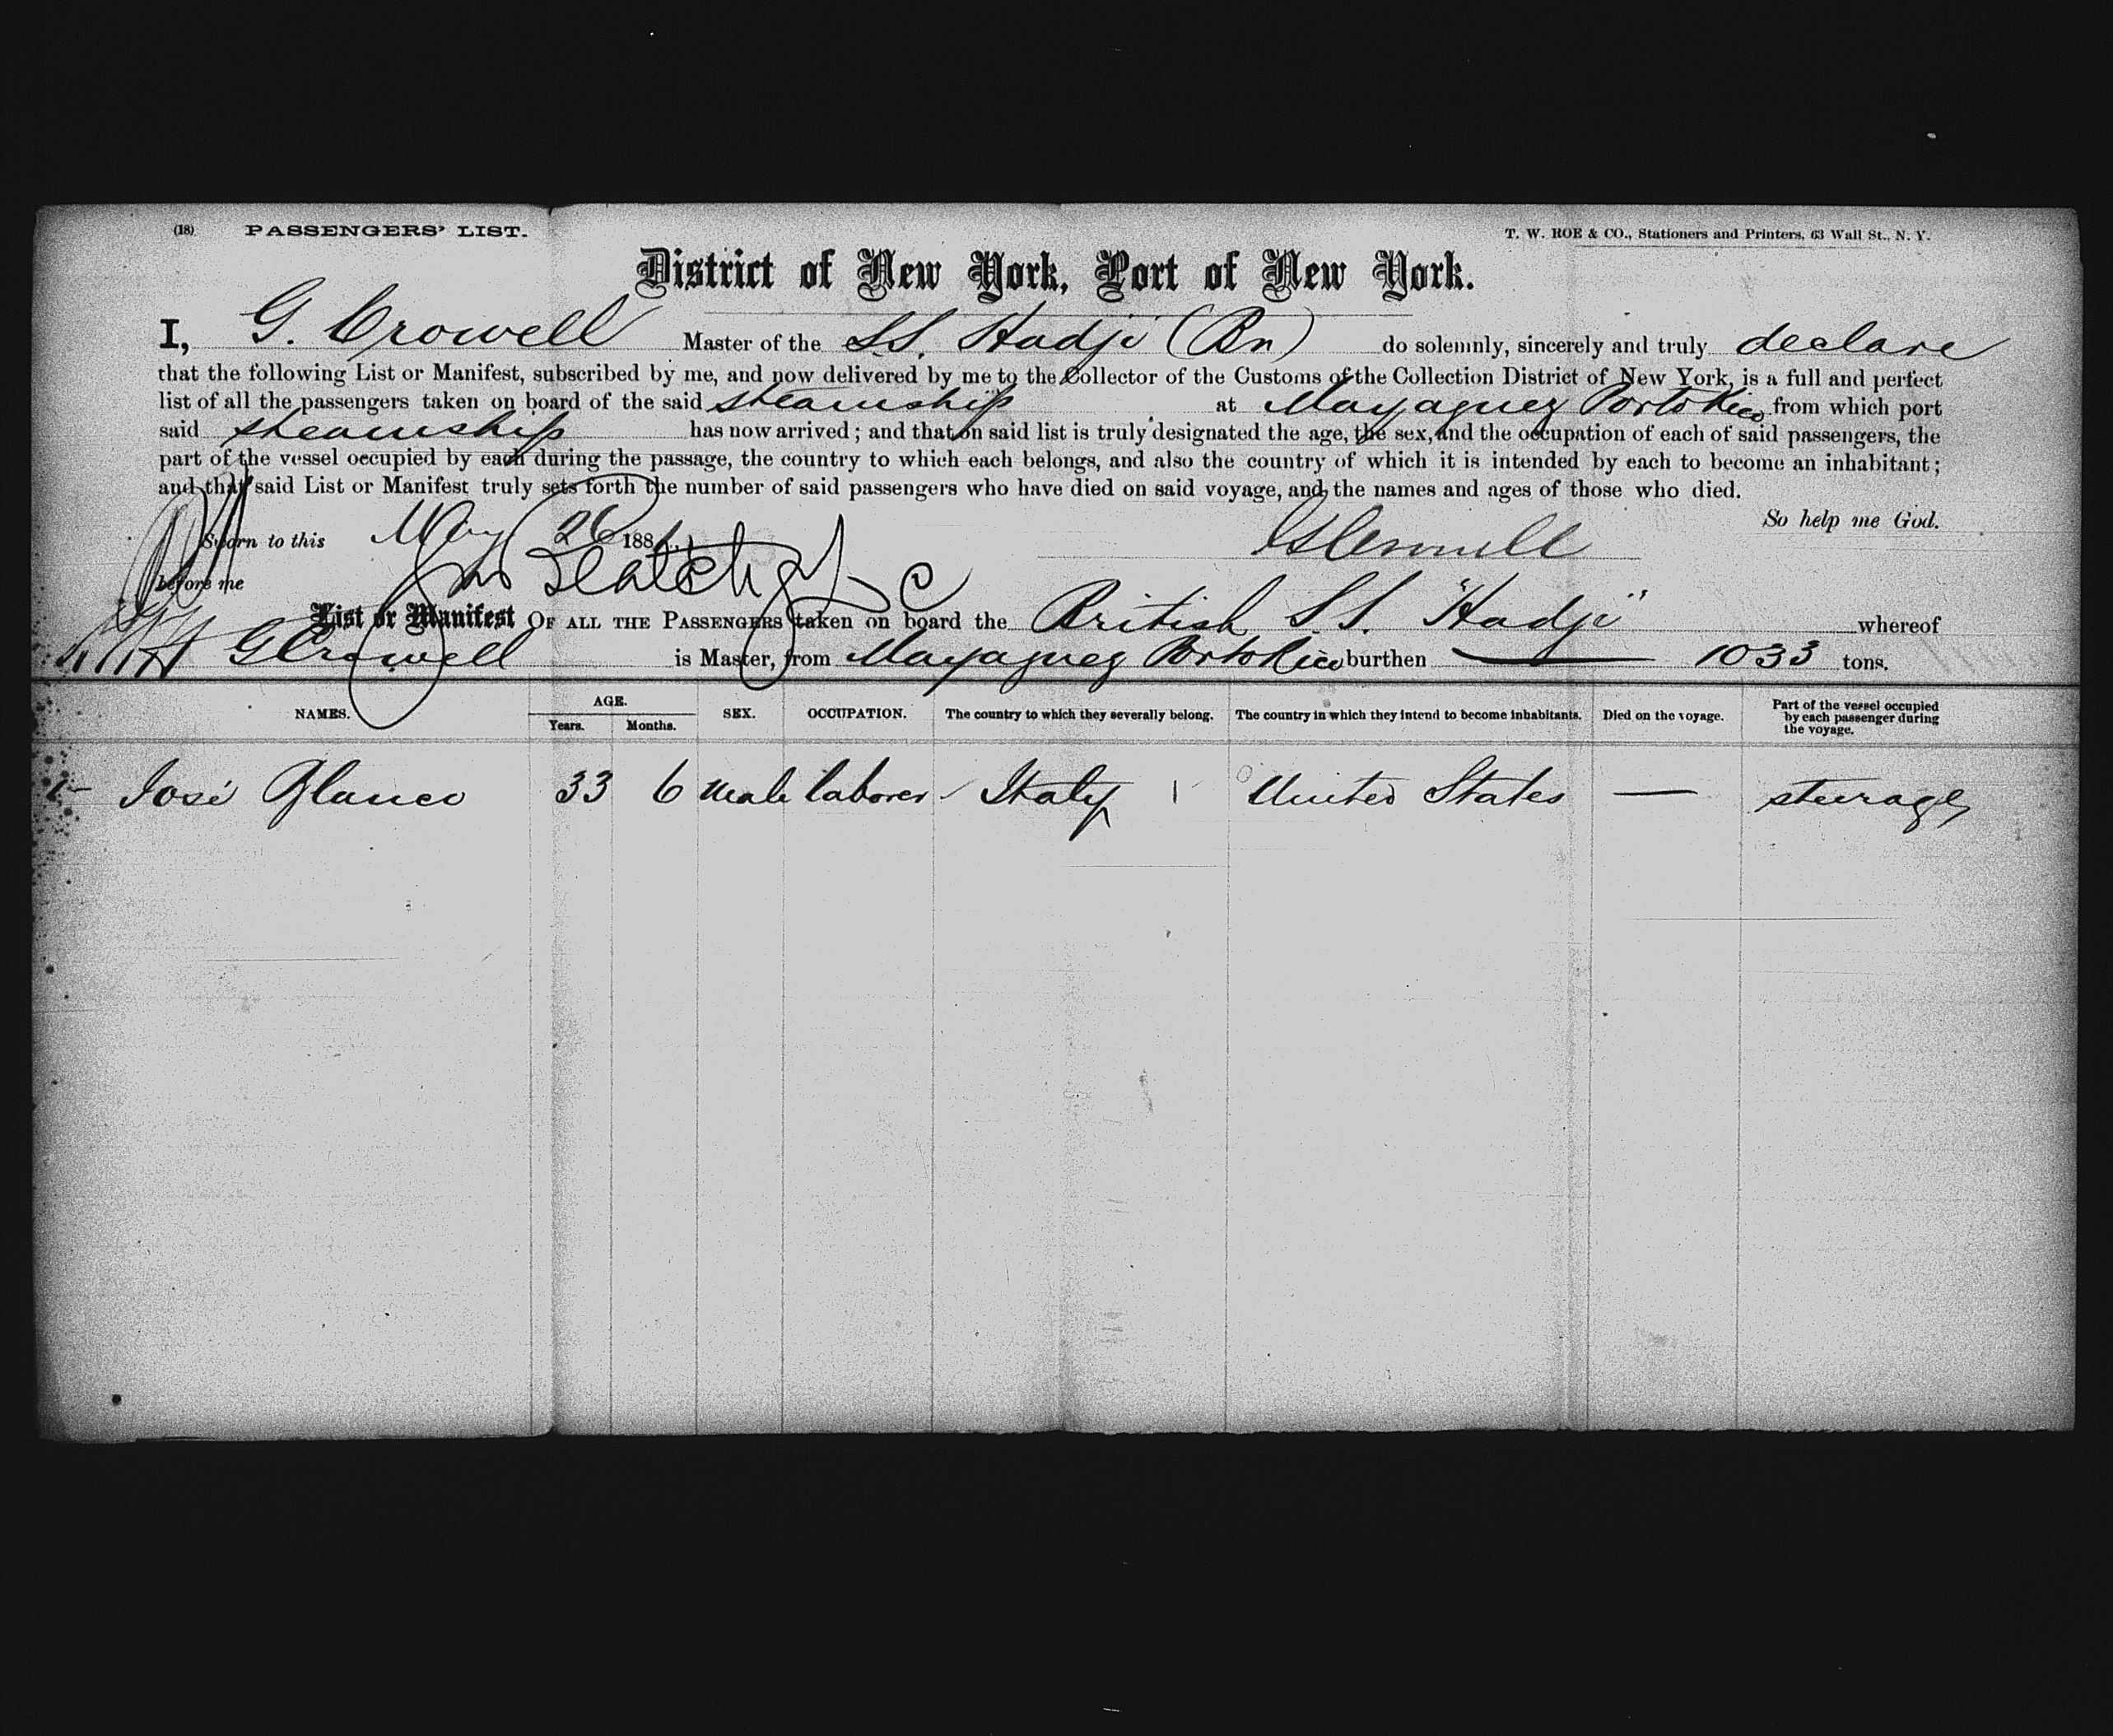 (18) PASSENGERS' LIST. T. W. ROE & CO., Stationers and Printers, 63 Wall St., N. Y.
District of New York, Port of New York.
I, G. Crowell Master of the S.S. Hadji (Bn) do solemnly, sincerely and truly declare
that the following List or Manifest, subscribed by me, and now delivered by me to the Collector of the Customs of the Collection District of New York, is a full and perfect
list of all the passengers taken on board of the said steamship at Mayaguez Porto Rico from which port
said steamship has now arrived; and that on said list is truly designated the age, the sex, and the occupation of each of said passengers, the
part of the vessel occupied by each during the passage, the country to which each belongs, and also the country of which it is intended by each to become an inhabitant;
and that said List or Manifest truly sets forth the number of said passengers who have died on said voyage, and the names and ages of those who died.
So help me God.
Sworn to this May 26 188
G Crowell
before me
List or Manifest OF ALL THE PASSENGERS taken on board the British S.S. "Hadji" whereof
G Crowell is Master, from Mayaguez Porto Rico burthen 1033 tons.
NAMES. AGE. Years. Months. SEX. OCCUPATION. The country to which they severally belong. The country in which they intend to become inhabitants. Died on the voyage. Part of the vessel occupied by each passenger during the voyage.
1- José Blanco 33 6 male laborer Italy 1 United States — steerage